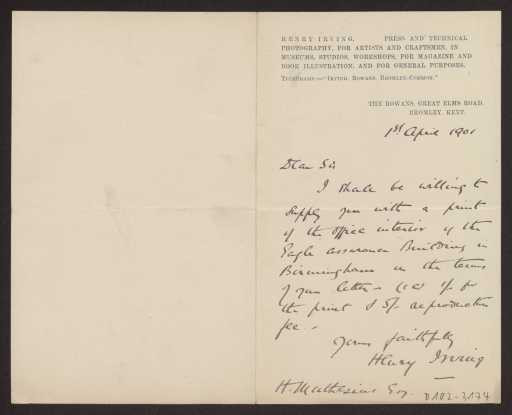 HENRY IRVING. PRESS AND TECHNICAL
PHOTOGRAPHY, FOR ARTISTS AND CRAFTSMEN, IN
MUSEUMS, STUDIOS, WORKSHOPS, FOR MAGAZINE AND
BOOK ILLUSTRATION, AND FOR GENERAL PURPOSES.
TELEGRAMS:—"IRVING, ROWANS, BROMLEY-COMMON."
THE ROWANS, GREAT ELMS ROAD,
BROMLEY, KENT.
1st April 1901
Dear Sir
I shall be willing to
supply you with a print
of the office interior of the
Eagle assurance Building in
Birmingham on the terms
of your letter
the print & 5/- reproduction
fee.
Yours faithfully
Henry Irving
H. Muthesius Esq. D102-3174